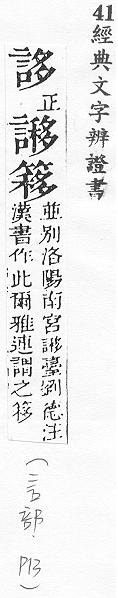 41
經典文字辨證書
誃
正
謻簃
並別洛陽南宮謻臺劉德注
漢書作此爾雅連謂之簃
(言部. P13)